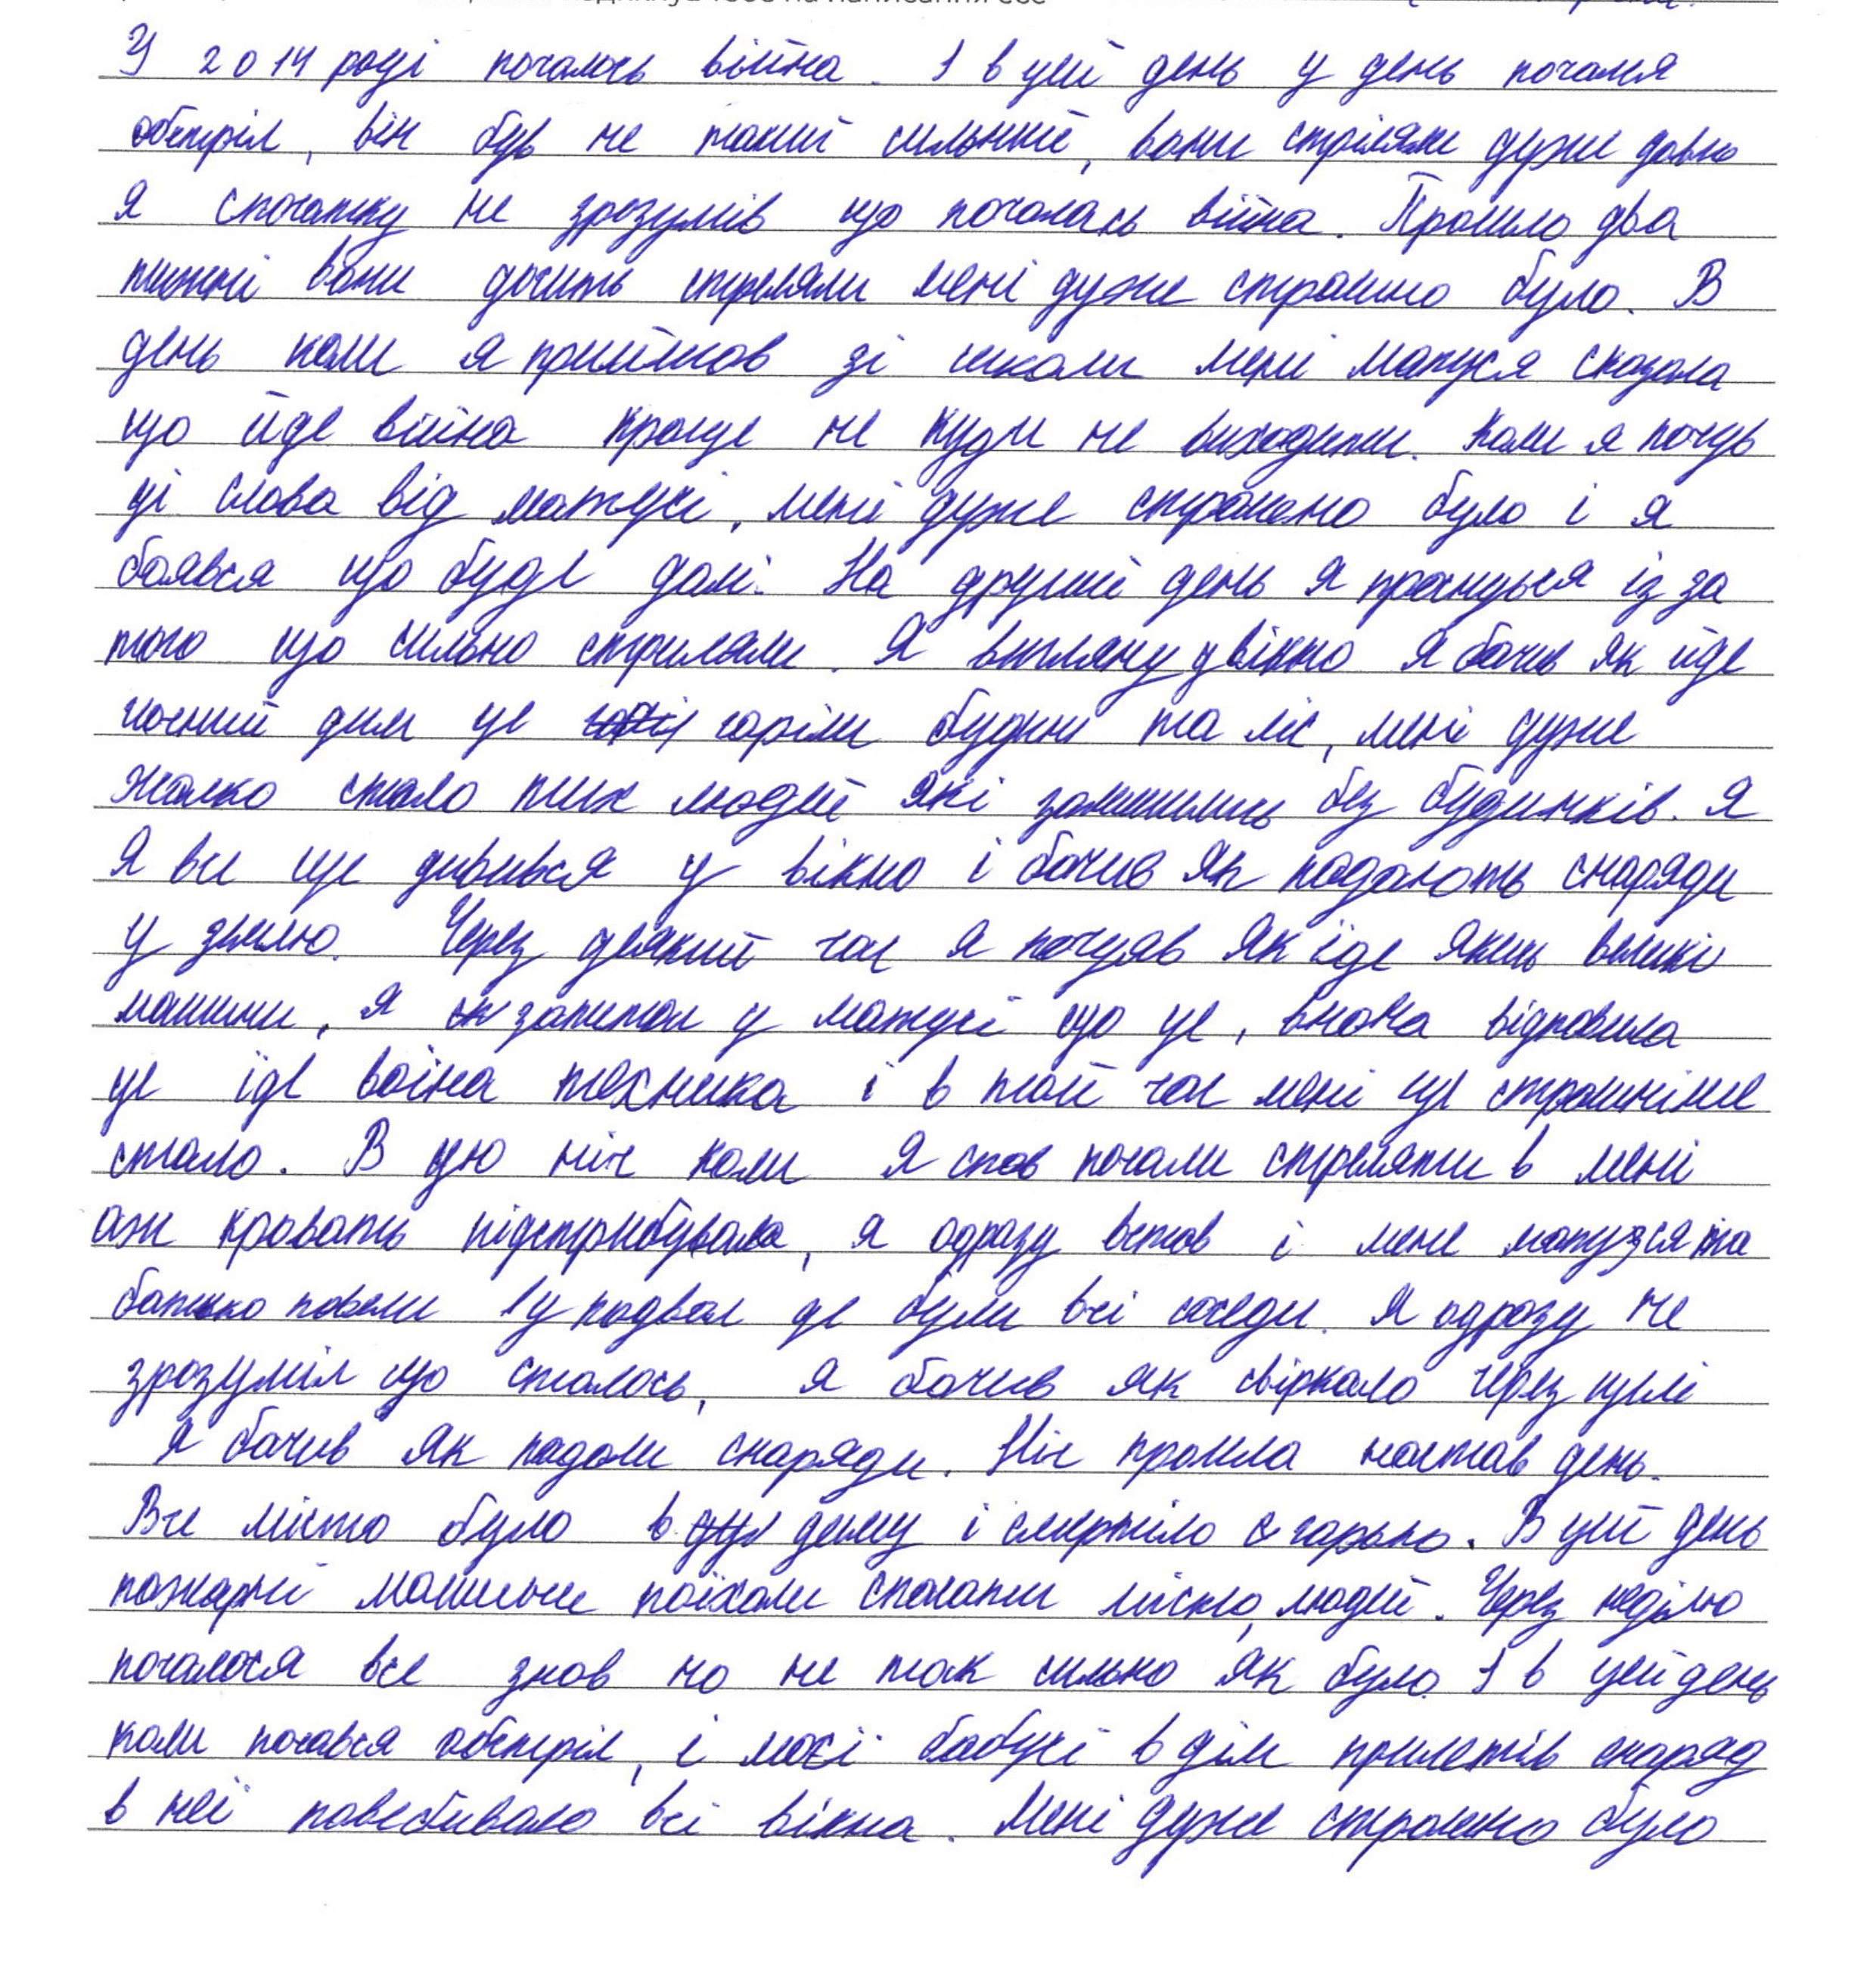 У 2014 році почалось війна. І в цей день у день почался
обстріл, він був не такий сильний, вони стріляли дуже довго
я спочатку не зрозумів що почалась війна. Пройшло два
тижні вони досить стреляли мені дуже страшно було. В
день коли я прийшов зі школи мені матуся сказала
що йде війна краще не куди не виходити. Коли я почув
ці слова від матусі, мені дуже страшно було і я
боявся що буде далі. На другий день я прокнувся із за
того що сильно стриляли. Я вигляну у вікно я бачив як йде
чосний дим це горіли будин та ліс, мені дуже
жалко стало тих людей які залишились без будинків. Я
Я все ще дивився у вікно і бачив як падають снаряди
у землю. Через деякий час я почуяв як їде якись великі
машини, я запитал у матусі що це, вона відповила
це їде воїна техника і в той час мені ще страшніше
стало. В цю ніч коли я спав почали стреляти в мені
аж кровать підстрибувала, я одразу встав і мене матуся та
батько повели у подвал де були всі соседи. Я одразу не
зрозуміл що сталось, я бачив як свіркало через щілі
я бачив як падали снаряди. Ніч пройшла настав день.
Все місто було в диму і смерділо гарью. В цей день
пожарні машини поїхали спасати місто, людей. Через неділю
почалося все знов но не так сильно як було. І в цей день
коли почався обстріл, і моєї бабусі в дім прилетів снаряд
в неї повисбивало всі вікна. Мені дуже страшно було